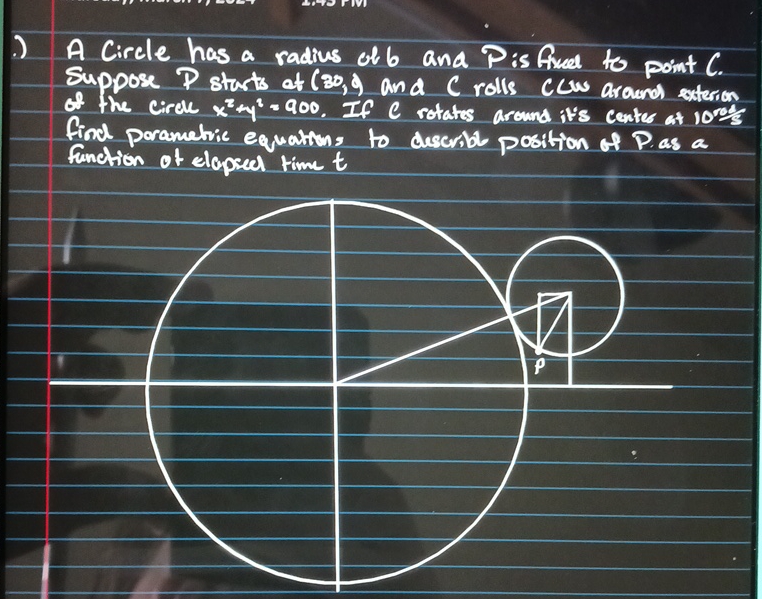 1:45 PM
.) A Circle has a radius of 6 and P is fixed to point C.
Suppose P starts at (30, ) and C rolls CCW around exterior
of the circle x²+y² = 900. If C rotates around it's center at 10 rad/s
find parametric equations to describe position of P. as a
function of elapsed time t
P